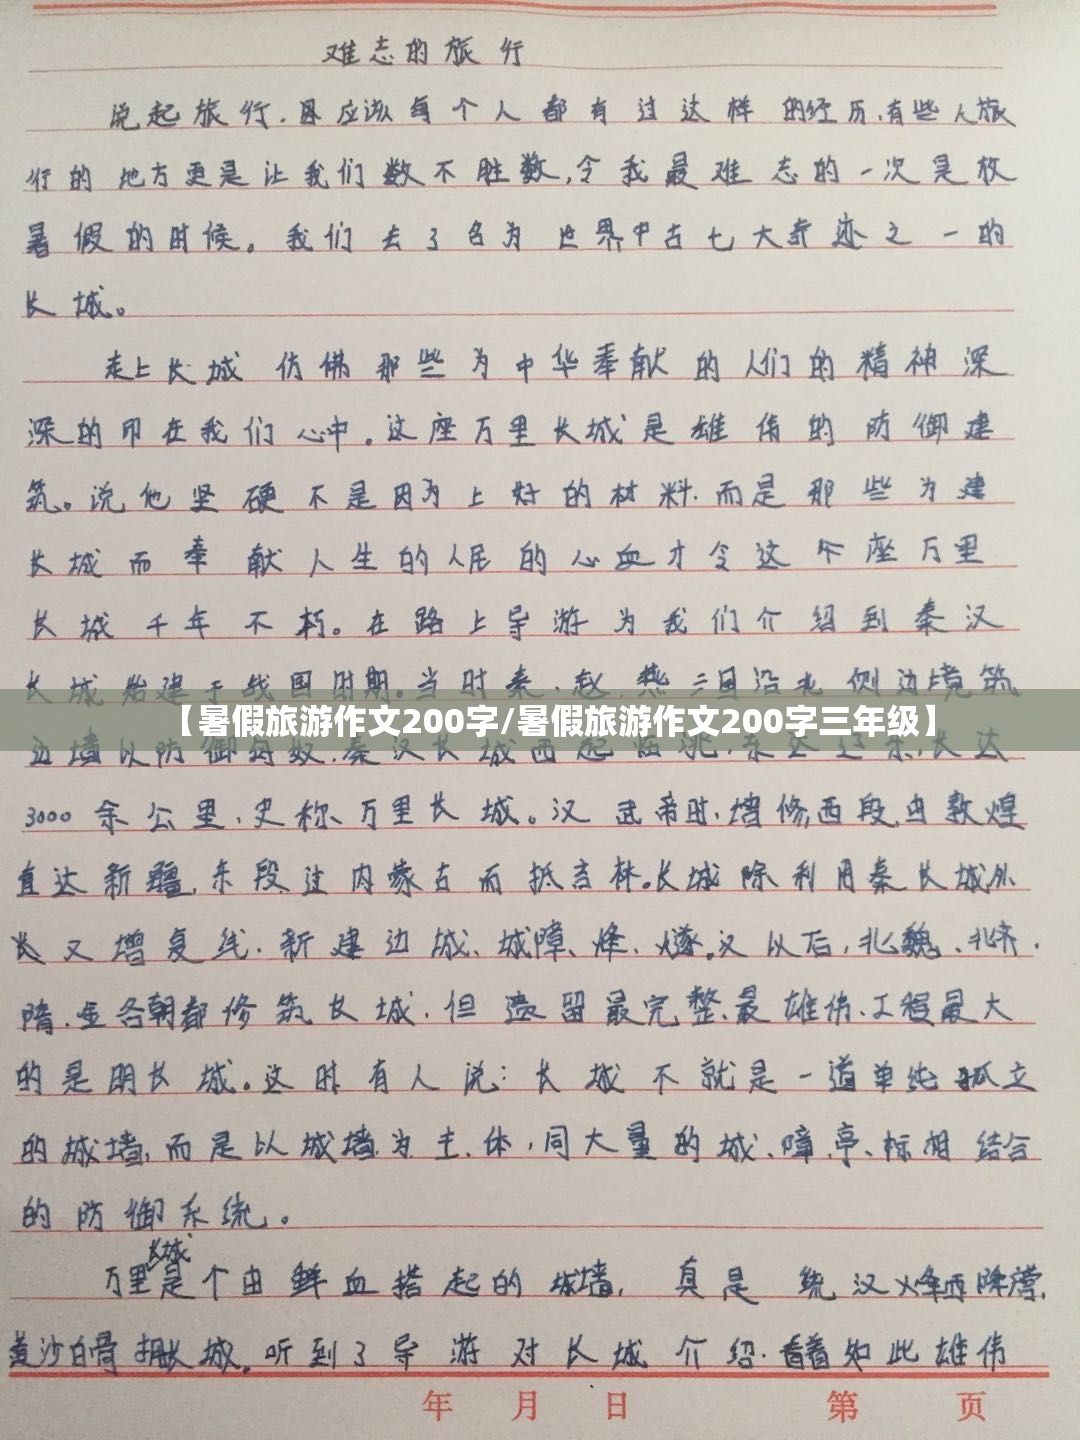 难志的旅行
说起旅行,因应该每个人都有过这样的经历,有些人旅
行的地方更是让我们数不胜数,令我最难志的一次是放
暑假的时候。我们去了名为世界中古七大奇迹之一的
长城。
走上长城仿佛那些为中华奉献的人们的精神深
深的印在我们心中。这座万里长城是雄伟的防御建
筑。说他坚硬不是因为上好的材料.而是那些为建
长城而奉献人生的人民的心血才令这个座万里
长城千年不朽。在路上导游为我们介绍到秦汉
长城始建于战国时期。当时秦、赵、燕三国沿北侧边境筑
【暑假旅游作文200字/暑假旅游作文200字三年级】
边墙以防御匈奴.秦汉长城西起临洮,东达辽东,长达
3000余公里,史称万里长城。汉武帝时,增修西段由敦煌
直达新疆,东段过内蒙古而抵吉林。长城除利用秦长城外
长又增复线.新建边城、城障、烽、燧。汉以后,北魏、北齐.
隋.金各朝都修筑长城.但遗留最完整、最雄伟、工程最大
的是明长城。这时有人说:长城不就是一道单纯孤立
的城墙,而是以城墙为主体,同大量的城、障、亭、标相结合
的防御系统。
万里长城是个由鲜血搭起的城墙,真是统汉烽西降嶂,
黄沙白骨拥长城。听到了导游对长城介绍.看着如此雄伟
年 月 日 第 页